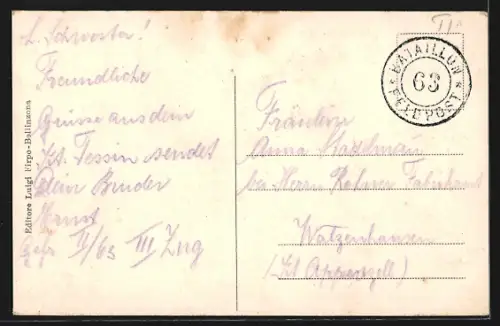 L. Schwester!
Freundliche
Grüsse aus dem
Kt. Tessin sendet
Dein Bruder
Ernst
II/63 III Zug
Editore Luigi Firpo-Bellinzona
BATAILLON
63
FELDPOST
Fräulein
Anna
bei Herrn Rohner Fabrikant
(Kt Appenzell)